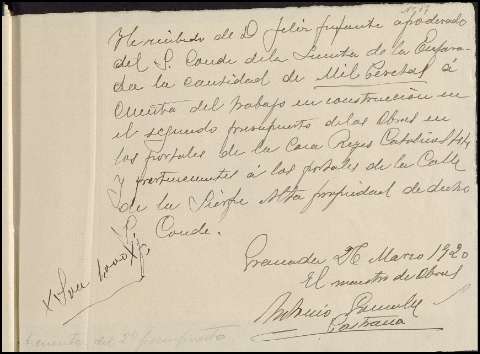 He recibido de D. Felix Infante apoderado
del S. Conde de la Quinta de la Enjara-
da la cantidad de Mil Pesetas á
cuenta del trabajo en construcción en
el segundo presupuesto de las Obras en
los portales de la Casa Reyes Catolicos
y pertenecientes á los portales de la Calle
de la Sierpe Alta propiedad de dicho
S. Conde.
Son 1000
Granada 26 Marzo 1920
El maestro de Obras
Antonio
Pastrana
A cuenta del 2º presupuesto